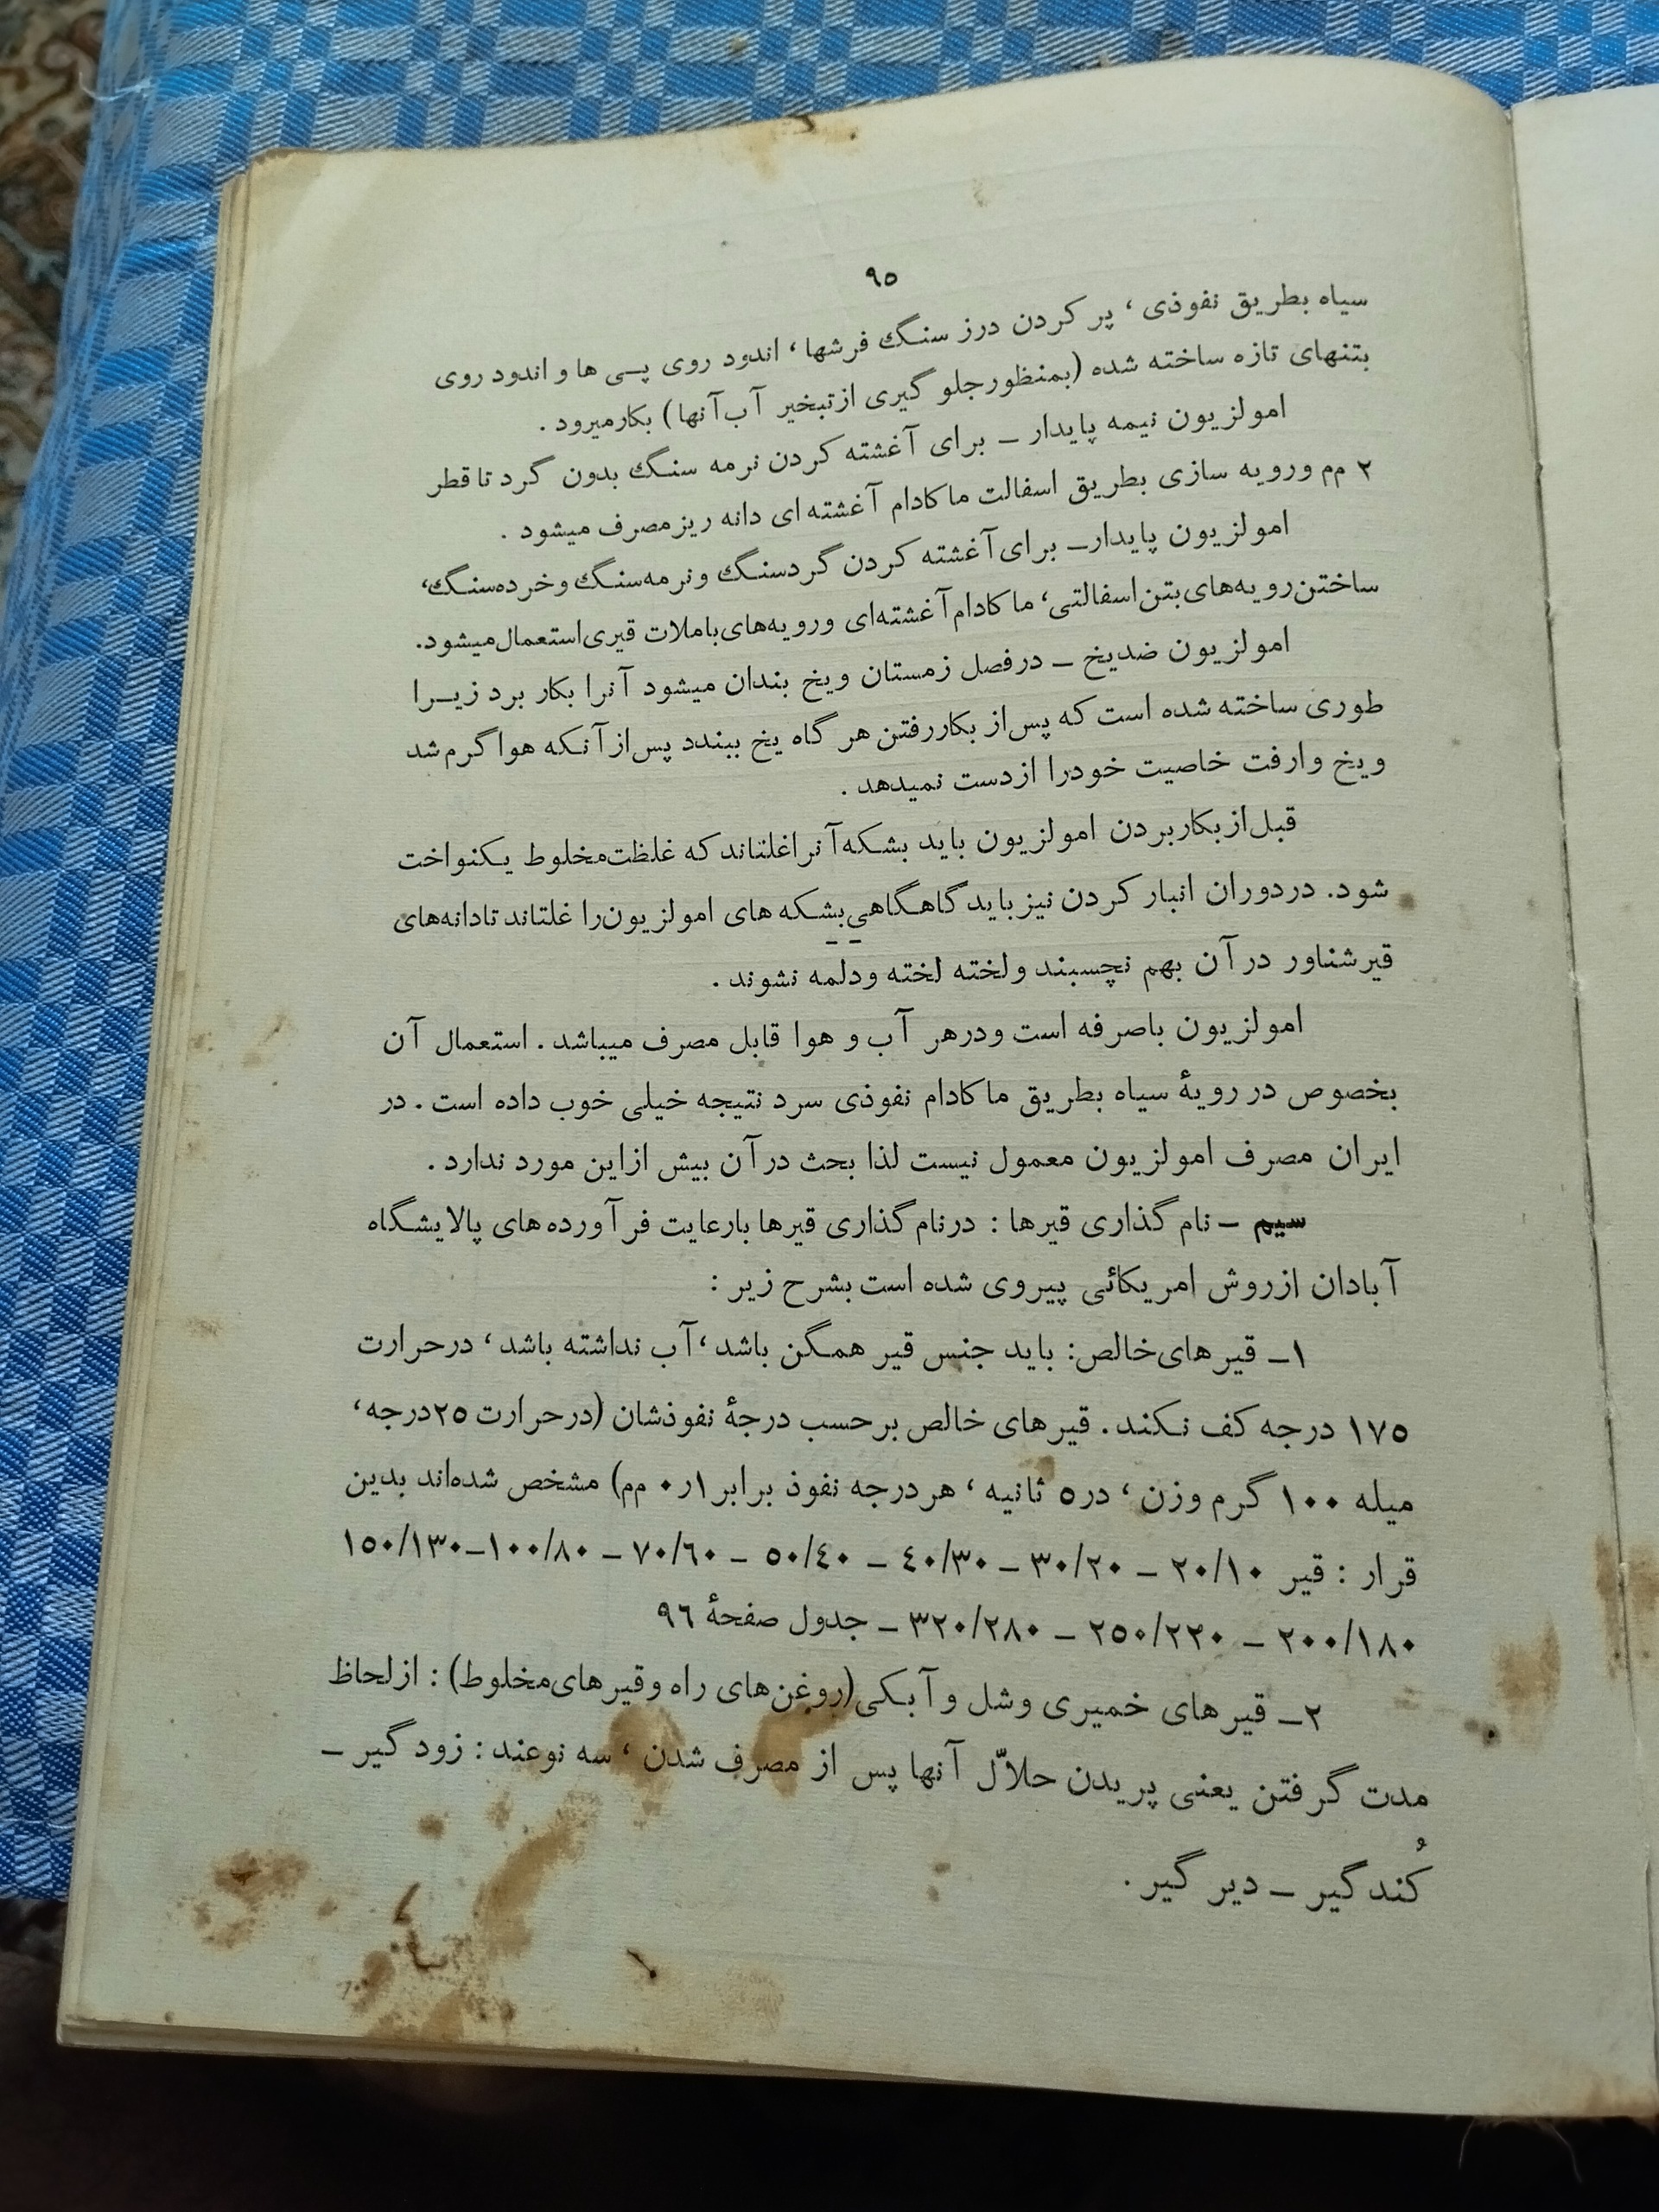 ٩٥
سیاه بطریق نفوذی ، پر کردن درز سنگ فرشها ، اندود روی پی ها و اندود روی
بتنهای تازه ساخته شده (بمنظور جلو گیری از تبخیر آب آنها) بکار میرود .
امولزیون نیمه پایدار – برای آغشته کردن نرمه سنگ بدون گرد تا قطر
٢ مم ورویه سازی بطریق اسفالت ماکادام آغشته ای دانه ریز مصرف میشود .
امولزیون پایدار – برای آغشته کردن گردسنگ و نرمه‌سنگ و خرده‌سنگ،
ساختن رویه‌های بتن اسفالتی، ماکادام آغشته‌ای ورویه‌های با ملات قیری استعمال میشود.
امولزیون ضدیخ – در فصل زمستان و یخ بندان میشود آنرا بکار برد زیرا
طوری ساخته شده است که پس از بکار رفتن هر گاه یخ ببندد پس از آنکه هوا گرم شد
و یخ وارفت خاصیت خودرا ازدست نمیدهد .
قبل از بکار بردن امولزیون باید بشکه آنرا غلتاند که غلظت مخلوط یکنواخت
شود. در دوران انبار کردن نیز باید گاهگاهی بشکه های امولزیون را غلتاند تا دانه‌های
قیر شناور در آن بهم نچسبند و لخته لخته ودلمه نشوند .
امولزیون باصرفه است ودرهر آب و هوا قابل مصرف میباشد . استعمال آن
بخصوص در رویهٔ سیاه بطریق ماکادام نفوذی سرد نتیجه خیلی خوب داده است . در
ایران مصرف امولزیون معمول نیست لذا بحث در آن بیش ازاین مورد ندارد .
سیم – نام گذاری قیرها : درنام گذاری قیرها بارعایت فرآورده های پالایشگاه
آبادان ازروش امریکائی پیروی شده است بشرح زیر :
١– قیر های خالص: باید جنس قیر همگن باشد ، آب نداشته باشد ، درحرارت
١٧٥ درجه کف نکند . قیرهای خالص برحسب درجهٔ نفوذشان (درحرارت ٢٥ درجه ،
میله ١٠٠ گرم وزن ، در ٥ ثانیه ، هر درجه نفوذ برابر ١ر٠ مم) مشخص شده‌اند بدین
قرار : قیر ٢٠/١٠ – ٣٠/٢٠ – ٤٠/٣٠ – ٥٠/٤٠ – ٧٠/٦٠ – ١٠٠/٨٠–١٥٠/١٣٠
٢٠٠/١٨٠ – ٢٥٠/٢٢٠ – ٣٢٠/٢٨٠ – جدول صفحهٔ ٩٦
٢– قیر های خمیری وشل و آبکی (روغن‌های راه وقیرهای مخلوط) : ازلحاظ
مدت گرفتن یعنی پریدن حلاّل آنها پس از مصرف شدن ، سه نوعند : زود گیر –
کُند گیر – دیر گیر .